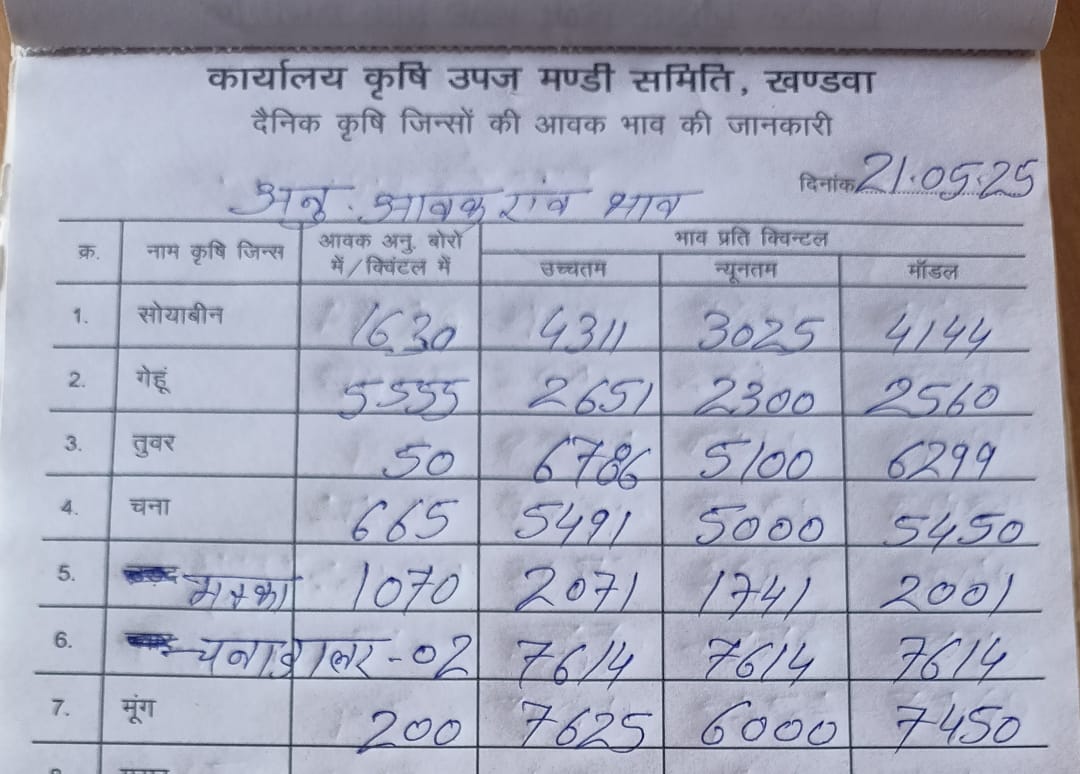 कार्यालय कृषि उपज मण्डी समिति, खण्डवा
दैनिक कृषि जिन्सों की आवक भाव की जानकारी
दिनांक 21.05.25
अनु. आवक एंव भाव
क्र. नाम कृषि जिन्स आवक अनु. बोरो में/क्विंटल में भाव प्रति क्विन्टल
उच्चतम न्यूनतम मॉडल
1. सोयाबीन 1630 4311 3025 4144
2. गेहूं 5555 2651 2300 2560
3. तुवर 50 6786 5100 6299
4. चना 665 5491 5000 5450
5. मक्का 1070 2071 1741 2001
6. चना डालर - 02 7614 7614 7614
7. मूंग 200 7625 6000 7450